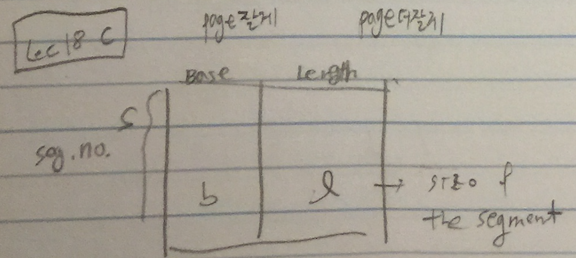 Lec 18 C
page 잘게 page 더잘게
Base Length
S
seg. no.
b l → size of
the segment